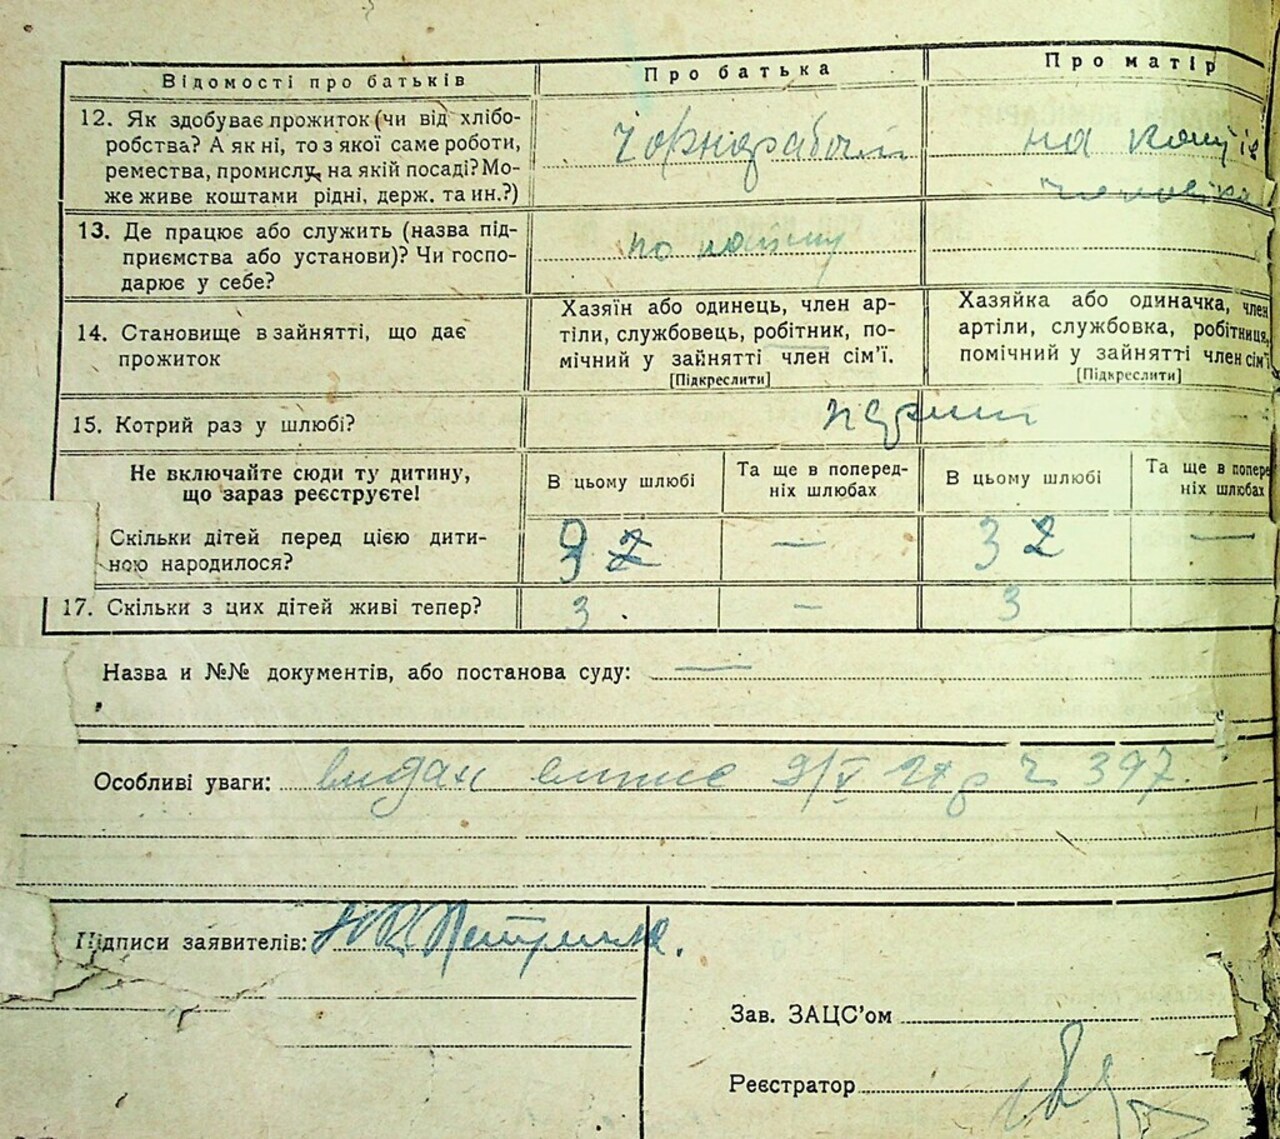 Відомості про батьків
Про батька
Про матір
12. Як здобуває прожиток (чи від хлібо-
робства? А як ні, то з якої саме роботи,
ремества, промислу, на якій посаді? Мо-
же живе коштами рідні, держ. та ин.?)
Чорнорабочий
на кошті
чоловіка
13. Де працює або служить (назва під-
приємства або установи)? Чи госпо-
дарює у себе?
по найму
14. Становище в зайнятті, що дає
прожиток
Хазяїн або одинець, член ар-
тіли, службовець, робітник, по-
мічний у зайнятті член сім'ї.
[Підкреслити]
Хазяйка або одиначка, член
артіли, службовка, робітниця,
помічний у зайнятті член сім'ї
[Підкреслити]
15. Котрий раз у шлюбі?
перший
Не включайте сюди ту дитину,
що зараз реєструєте!
В цьому шлюбі
Та ще в поперед-
ніх шлюбах
В цьому шлюбі
Та ще в попере
ніх шлюбах
Скільки дітей перед цією дити-
ною народилося?
3 2
—
3 2
—
17. Скільки з цих дітей живі тепер?
3
—
3
Назва и №№ документів, або постанова суду: —
Особливі уваги: видан 9/V 397.
Підписи заявителів:
Зав. ЗАЦС'ом
Реєстратор